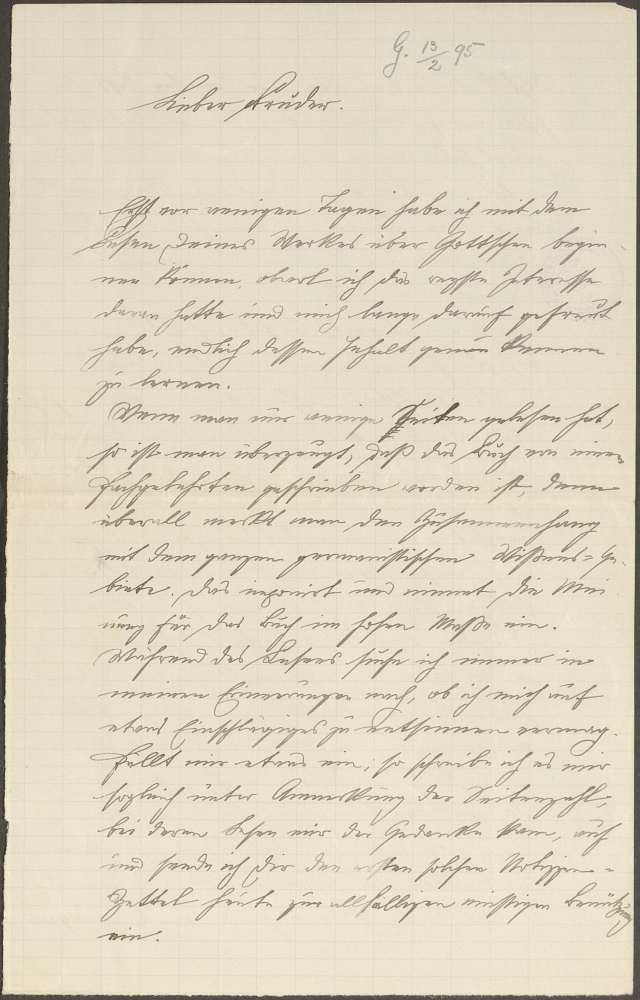 G. 13/2 95
Lieber Bruder.
Erst vor wenigen Tagen habe ich mit dem
Lesen Deines Werkes über Gottschee begin-
nen können, obwol ich das regste Interesse
daran hatte und mich lange darauf gefreut
habe, endlich dessen Inhalt genau kennen
zu lernen.
Wenn man nur wenige Seiten gelesen hat,
so ist man überzeugt, daß das Buch von einem
Fachgelehrten geschrieben worden ist, denn
überall merkt man den Zusammenhang
mit dem ganzen germanistischen Wissens-Ge-
biete. Das imponirt und nimmt die Mei-
nung für das Buch im hohen Maße ein.
Während des Lesens suche ich immer in
meinen Erinnerungen nach, ob ich mich auf
etwas Einschlägiges zu entsinnen vermag.
Fällt mir etwas ein, so schreibe ich es mir
sogleich unter Anmerkung der Seitenzahl,
bei deren Lesen mir der Gedanke kam, auf
und sende ich Dir den ersten solchen Notizzen-
Zettel heute zur allfälligen einstigen Benützung
ein.